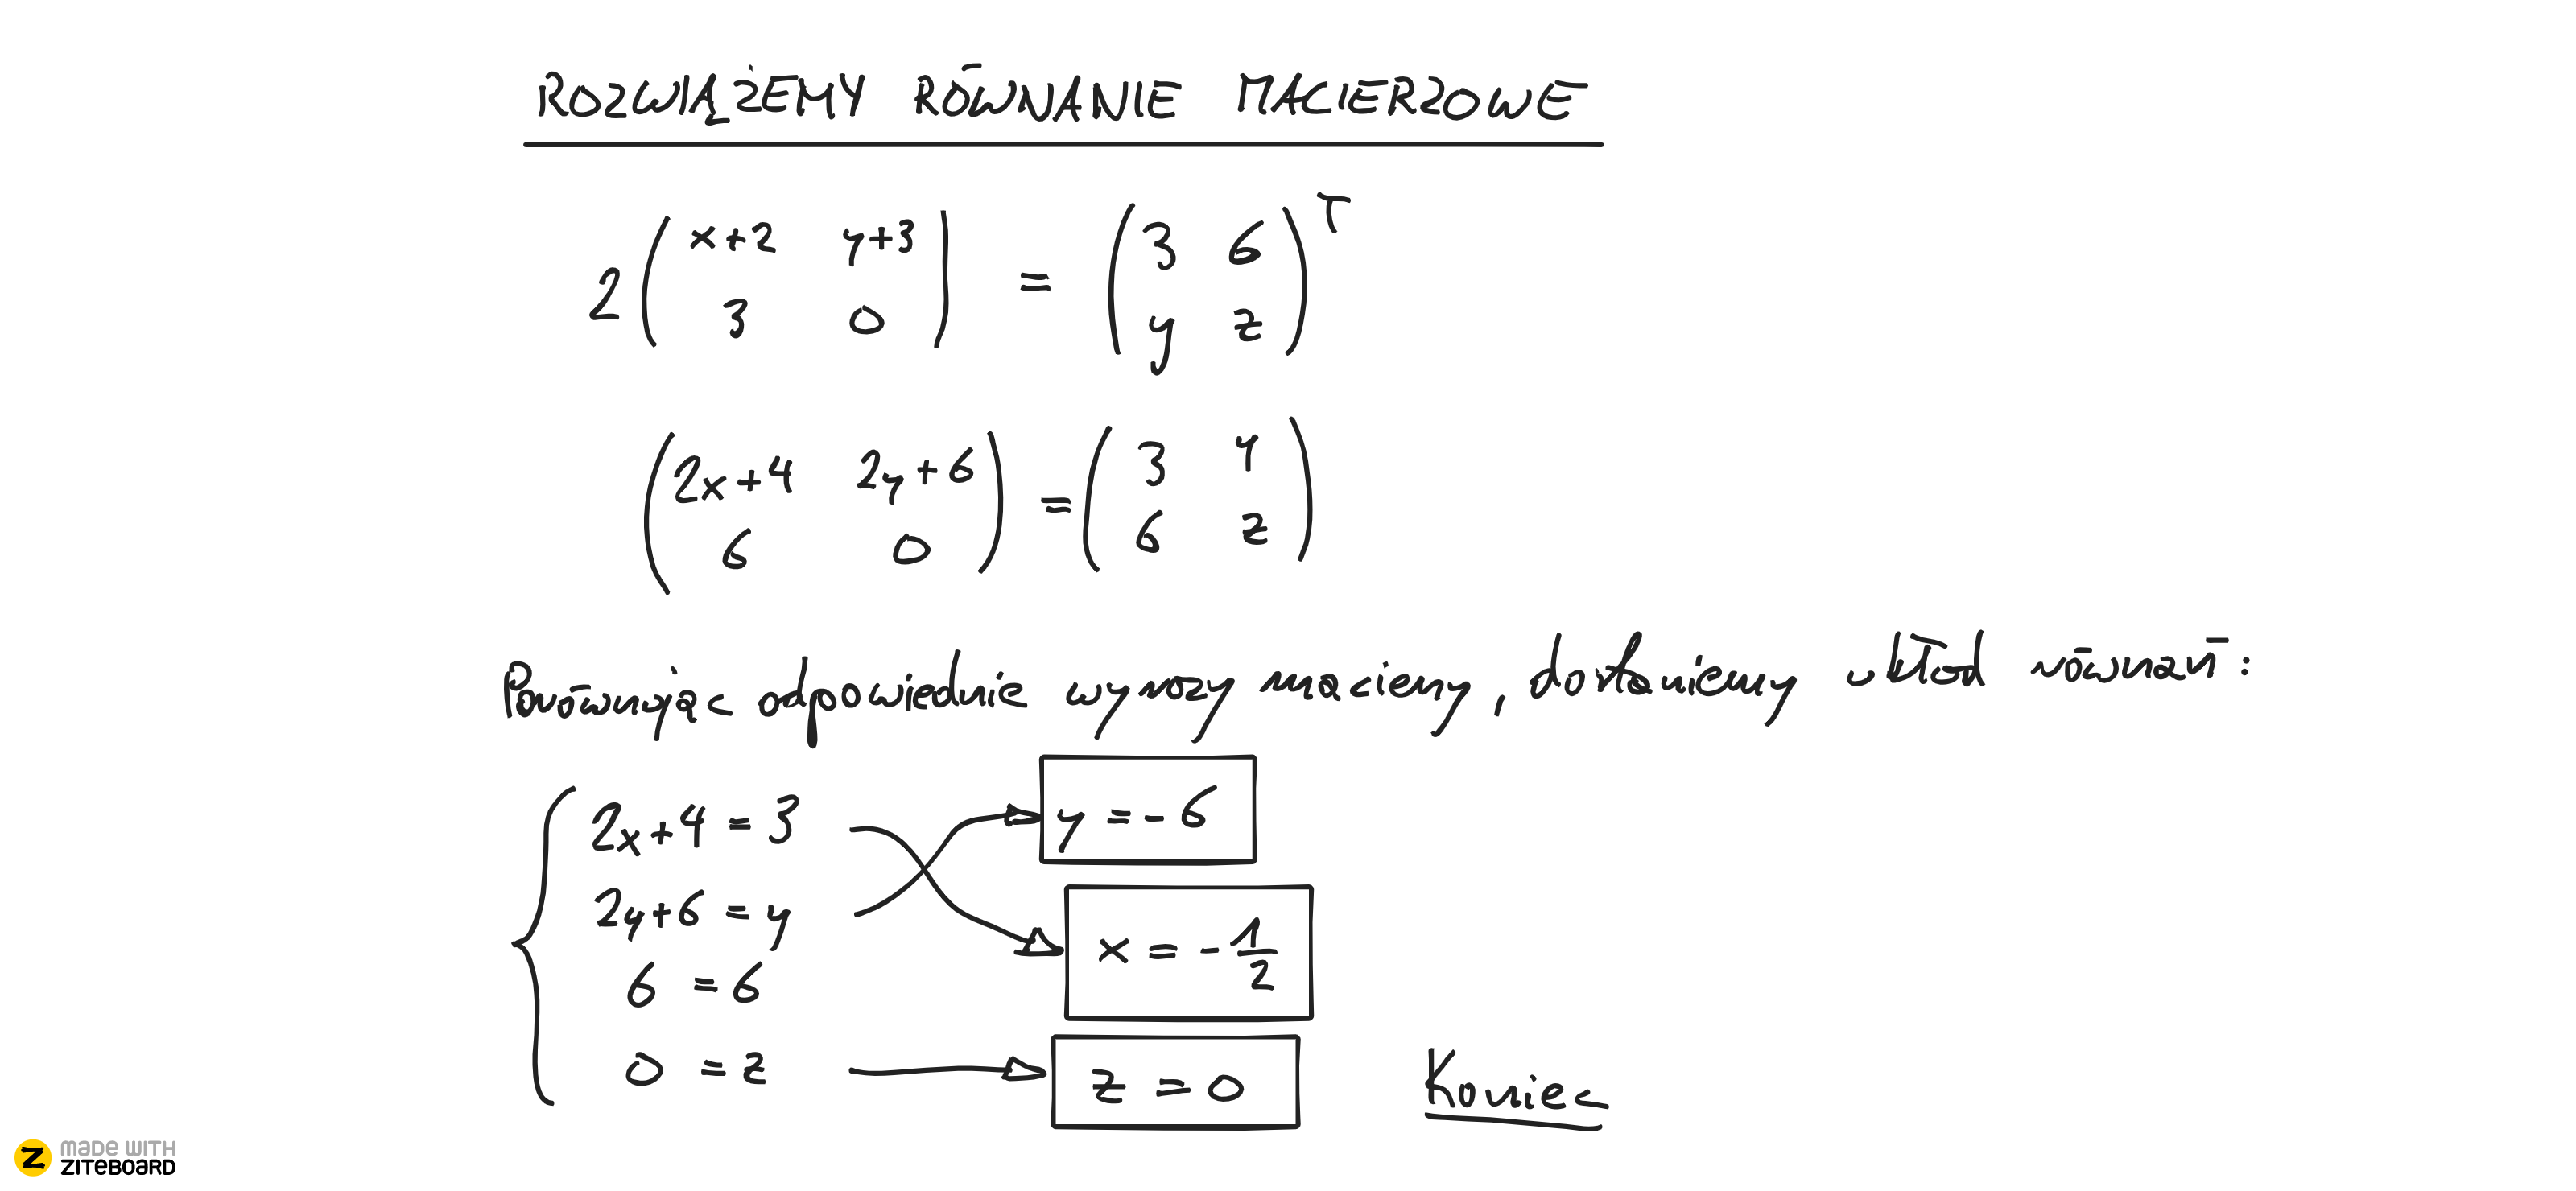 ROZWIĄŻEMY RÓWNANIE MACIERZOWE
2 ( x+2 y+3 ) = ( 3 6 )ᵀ
3 0 y z
( 2x+4 2y+6 ) = ( 3 y )
6 0 6 z
Porównując odpowiednie wyrazy macierzy, dostaniemy układ równań:
2x+4 = 3
y = -6
2y+6 = y
x = -1/2
6 = 6
0 = z
z = 0
Koniec
MADE WITH
ZITEBOARD